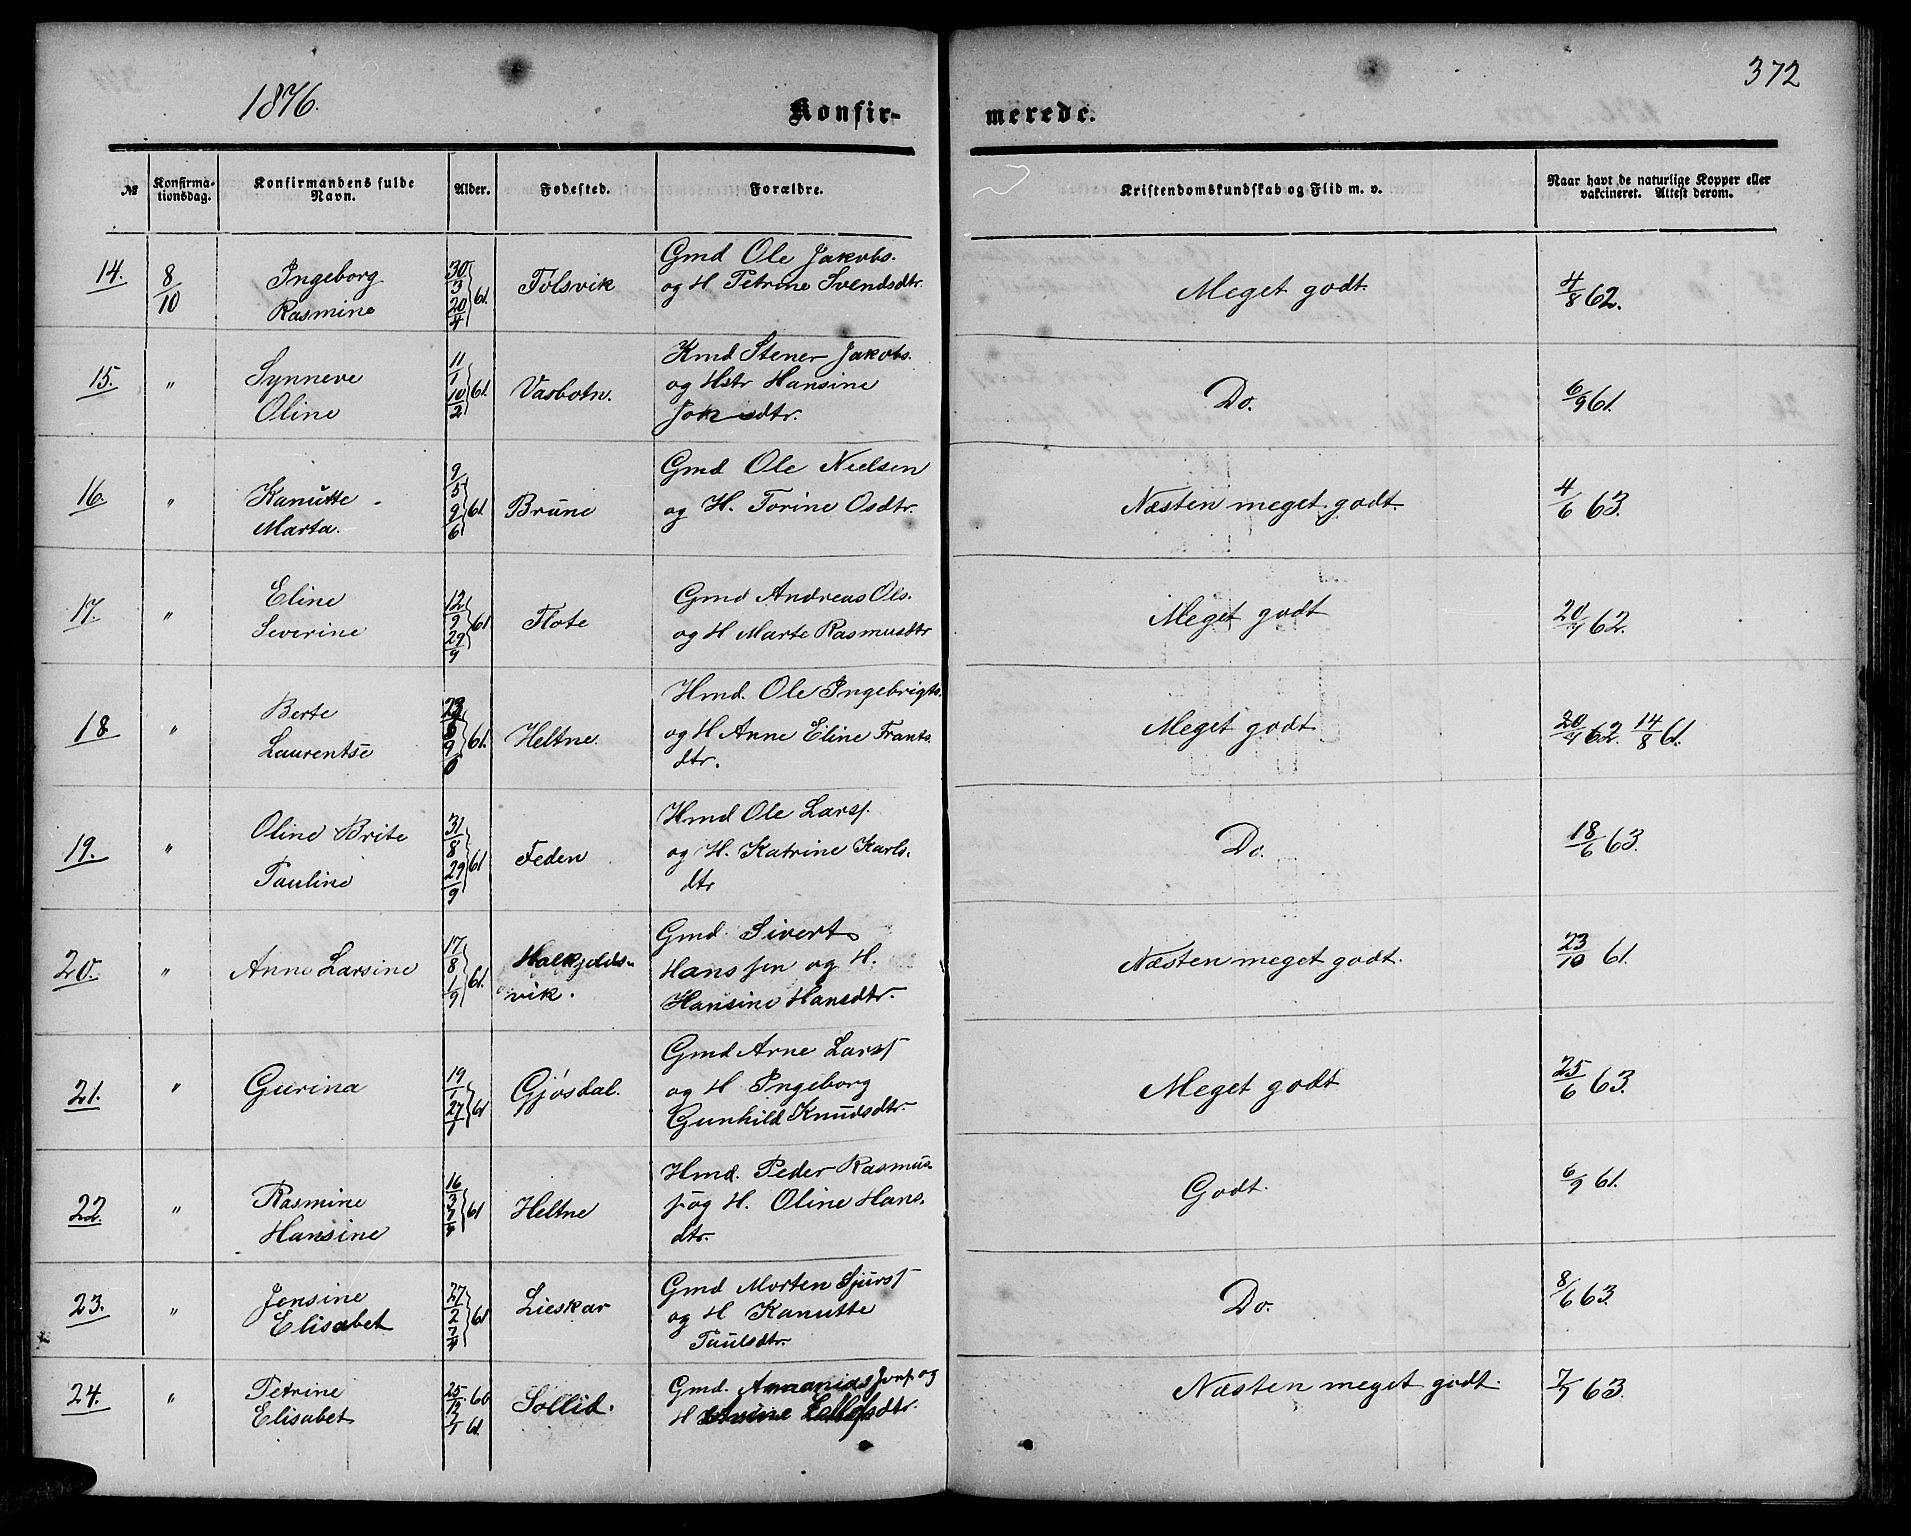 1876.
372
Konfir-
merede.
№
Konfirma-
tionsdag.
Konfirmandens fulde
Navn.
Alder.
Fødested.
Forældre.
Kristendomskundskab og Flid m. v.
Naar havt de naturlige Kopper eller
vakcineret. Attest derom.
14. 8/10 Ingeborg Rasmine 30/3 20/4 61 Folsvik Gmd Ole Jakobs. og H Petrine Svendsdtr. Meget godt. 4/8 62.
15. " Synneve Oline 11/1 10/2 61. Vasbotn. Kmd Stener Jakobs. og Hstr Hansine Jok sdtr. Do. 6/9 61.
16. " Kanutte Marta. 9/5 9/6 61 Brune Gmd Ole Nielsen og H. Torine Osdtr. Næsten meget godt 4/6 63.
17. " Eline Severine 12/9 29/9 61 Flote Gmd Andreas Ols. og H Marte Rasmusdtr Meget godt 20/7 62.
18. " Berte Laurentse 61. Heltne. Hmd. Ole Ingebrigts. og H Anne Eline Frants. dtr. Meget godt 20/7 62. 14/8 61.
19. " Oline Brite Pauline 31/8 29/9 61 Feden Hmd Ole Larsf. og H. Katrine Karls. dtr Do. 18/6 63.
20. " Anne Larsine 17/8 1/9 61. Halkjelds- vik. Gmd. Sivert Hansfen og H. Hansine Hansdtr. Næsten meget godt. 23/10 61.
21. " Gurina 19/1 27/1 61 Gjøsdal. Gmd Arne Larsf og H Ingeborg Gunhild Knudsdtr. Meget godt 25/6 63.
22 " Rasmine Hansine 16/3 7/4 61 Heltne Hmd. Peder Rasmus- f. og H. Oline Hans. dtr. Godt. 6/9 61.
23. " Jensine Elisabet 27/2 7/4 61 Lieskar Gmd Morten Sjursf og H Kanutte Paulsdtr. Do. 8/6 63.
24. " Petrine Elisabet 25/12 60 61. Sollid. Gmd. Ananias og H Næsten meget godt. 7/7 63.